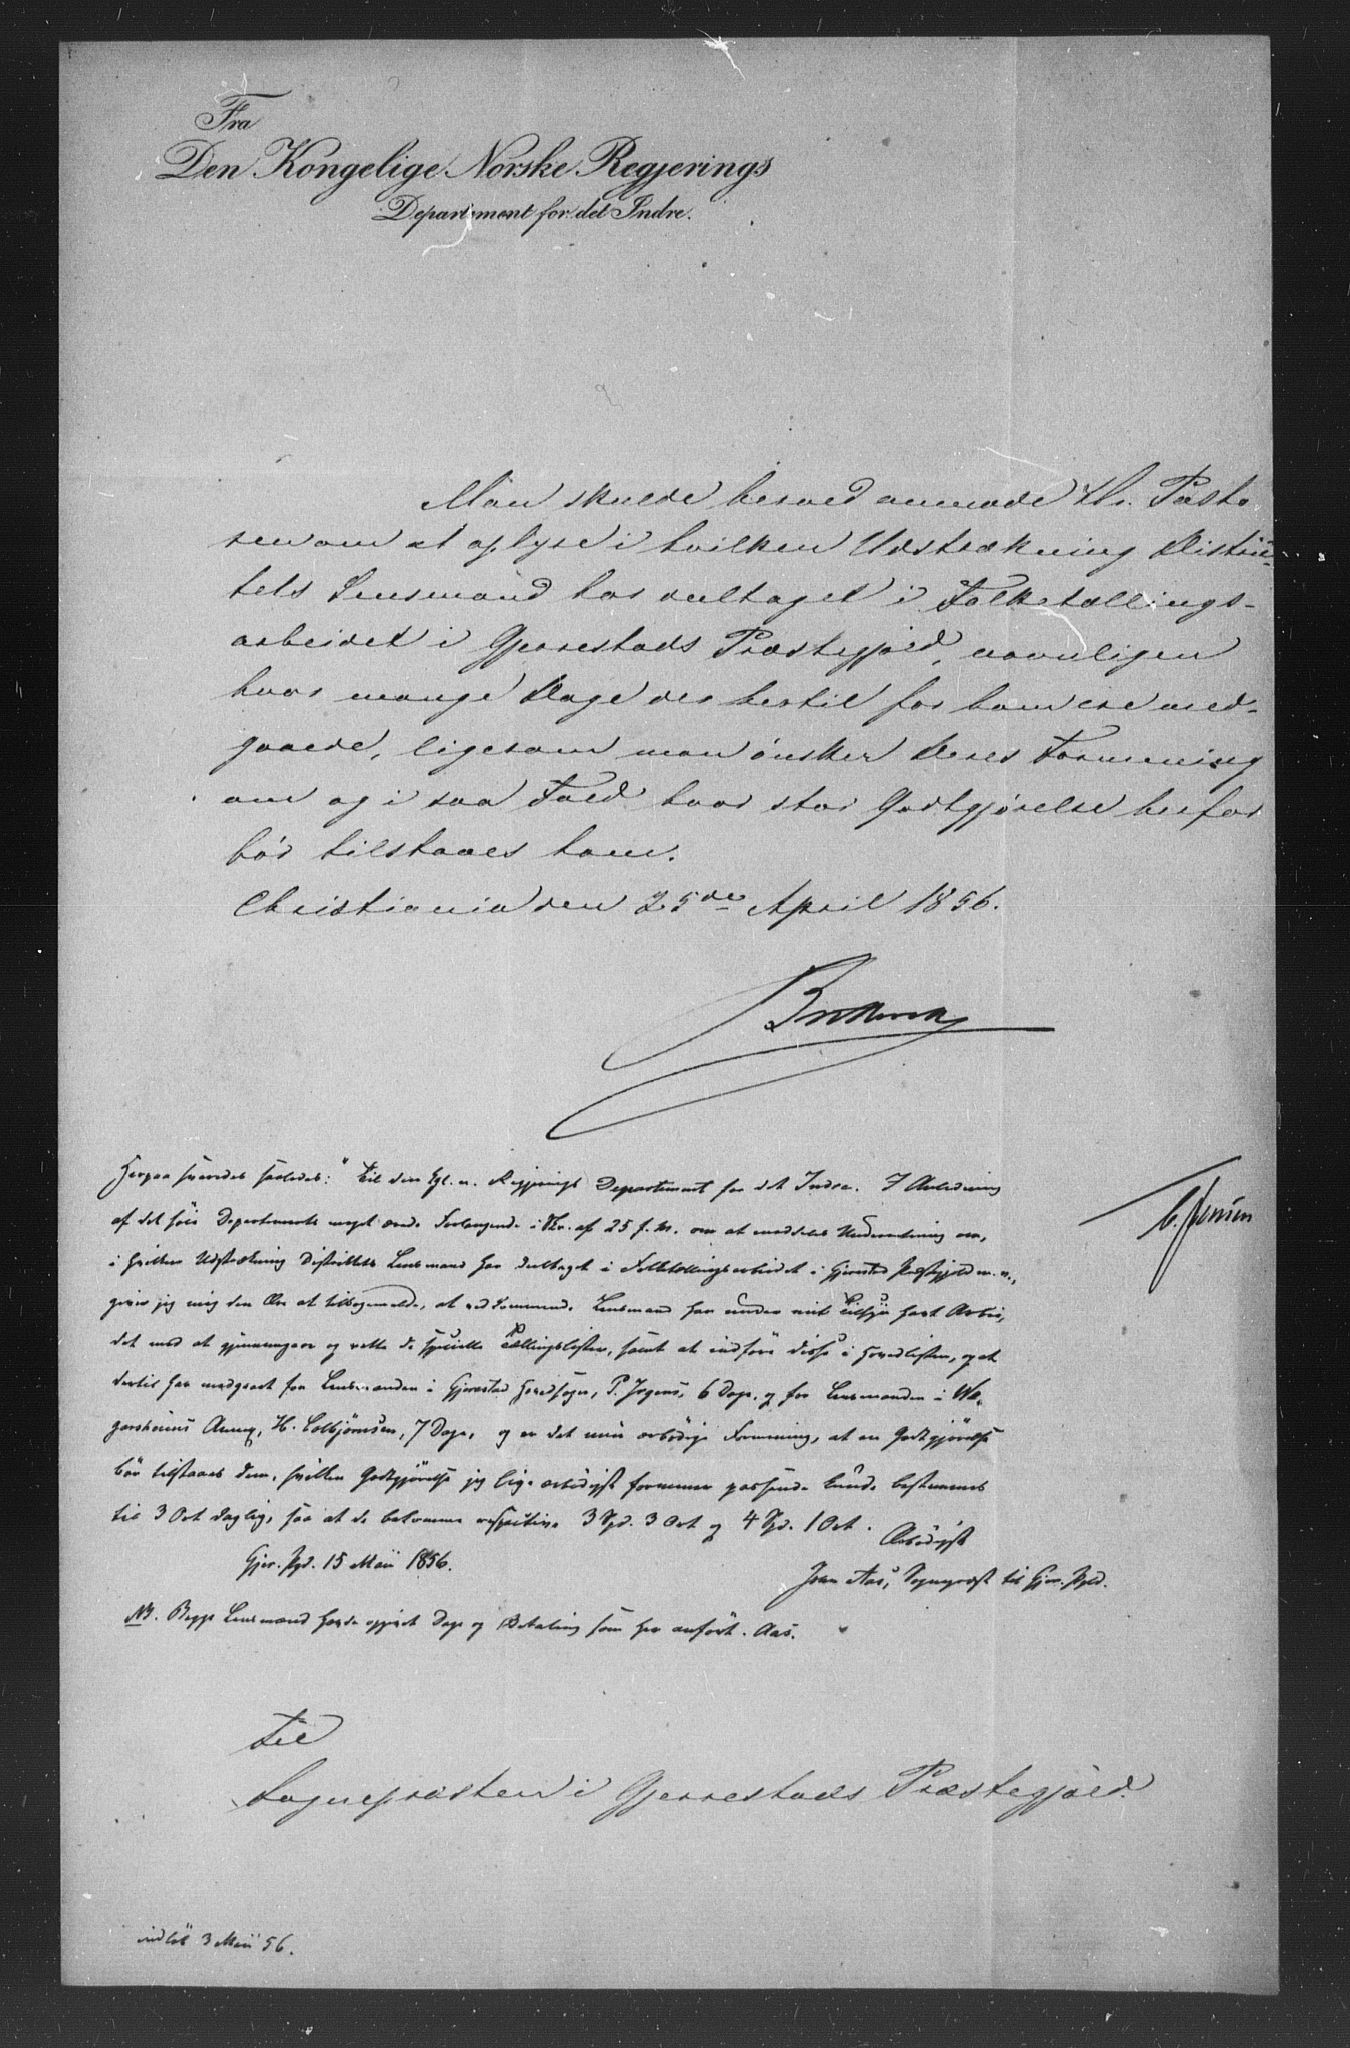 Fra
Den Kongelige Norske Regjerings
Departement for det Indre.
Man skulde herved anmode Hr. Pasto
ren om at oplyse i hvilken Udstrækning Distrik-
tets Lensmand har deeltaget i Folketællings-
arbeidet i Gjerrestads Præstegjeld, navnligen
hvor mange Dage der hertil for ham ere med-
gaaede, ligesom man ønsker Deres Formening
om og i saa Fald hvor stor Godtgjørelse herfor
bør tilstaaes ham.
Christiania den 25de April 1856.
Herpaa svaredes saaledes: "Til den kgl. n. Regjerings Departement for det Indre. I Anledning
af det höie Departements meget ærede Forlangende i Skr. af 25 f. M. om at meddeles Underretning om,
i hvilken Udstrækning Distriktets Lensmand har deeltaget i Folketællingsarbeidet i Gjerestad Præstegjeld m. m.,
giver jeg mig den Ære at tilbagemelde, at vedkommende Lensmand har under mit Tilsyn havt Arbei,
det med at gjennemgaae og rette de specielle Tællingslister, samt at indföre disse i Hovedlisten, og at
dertil har medgaaet for Lensmanden i Gjerestad Hovedsogn, P. Irgens, 6 Dage, og for Lensmanden i We,
gaarsheiens Annex, H. Colbjörnsen, 7 Dage, og er det min ærbödige Formening, at en Godtgjörelse
bör tilstaaes dem, hvilken Godtgjörelse jeg lige ærbödigst formener passende kunde bestemmes
til 3 Ort daglig, saa at de bekomme respective 3 Spd. 3 Ort og 4 Spd. 1 Ort.
Ærbödigst
Gjer. Pgd. 15 Maii 1856.
Aas, Sognepræst til Gjer. Pgld.
NB. Begge Lensmænd havde opgivet Dage og Betaling som her anfört. Aas.
C. Jensen
Til
Sognepræsten i Gjerrestads Præstegjeld.
indlöb 3 Maii 56.